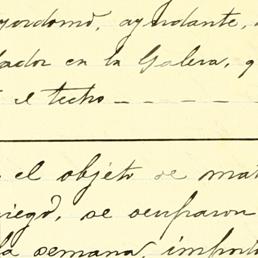 mayordomo, ayudante,
dador en la Galera, q
el techo - - - - -
el objeto de mat
riego, se ocuparon
la semana, import